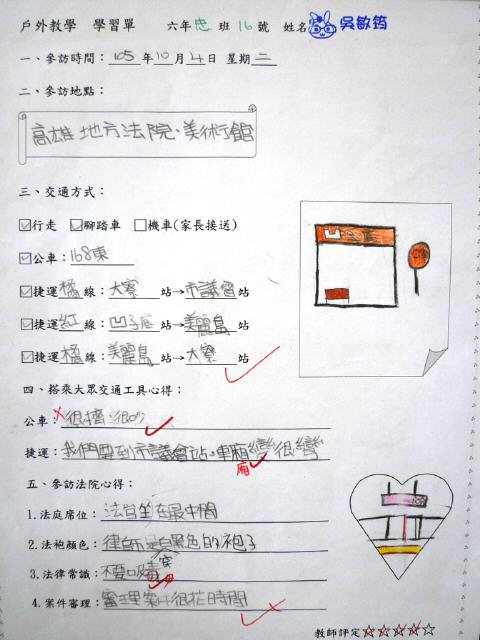 戶外教學 學習單 六年忠班16號 姓名 吳敏筠
一、參訪時間：105年10月4日 星期二
二、參訪地點：
高雄地方法院、美術館
三、交通方式：
行走 腳踏車 機車(家長接送)
公車：168東
捷運橘線：大寮站→市議會站
捷運紅線：凹子底站→美麗島站
捷運橘線：美麗島站→大寮站
四、搭乘大眾交通工具心得：
公車：很擠 很吵
捷運：我們要到市議會站，車廂變很彎
廂
五、參訪法院心得：
1.法庭席位：法官坐在最中間
2.法袍顏色：律師是白黑色的袍子
3.法律常識：不要吸毒
4.案件審理：審理案件很花時間
教師評定☆☆☆☆☆